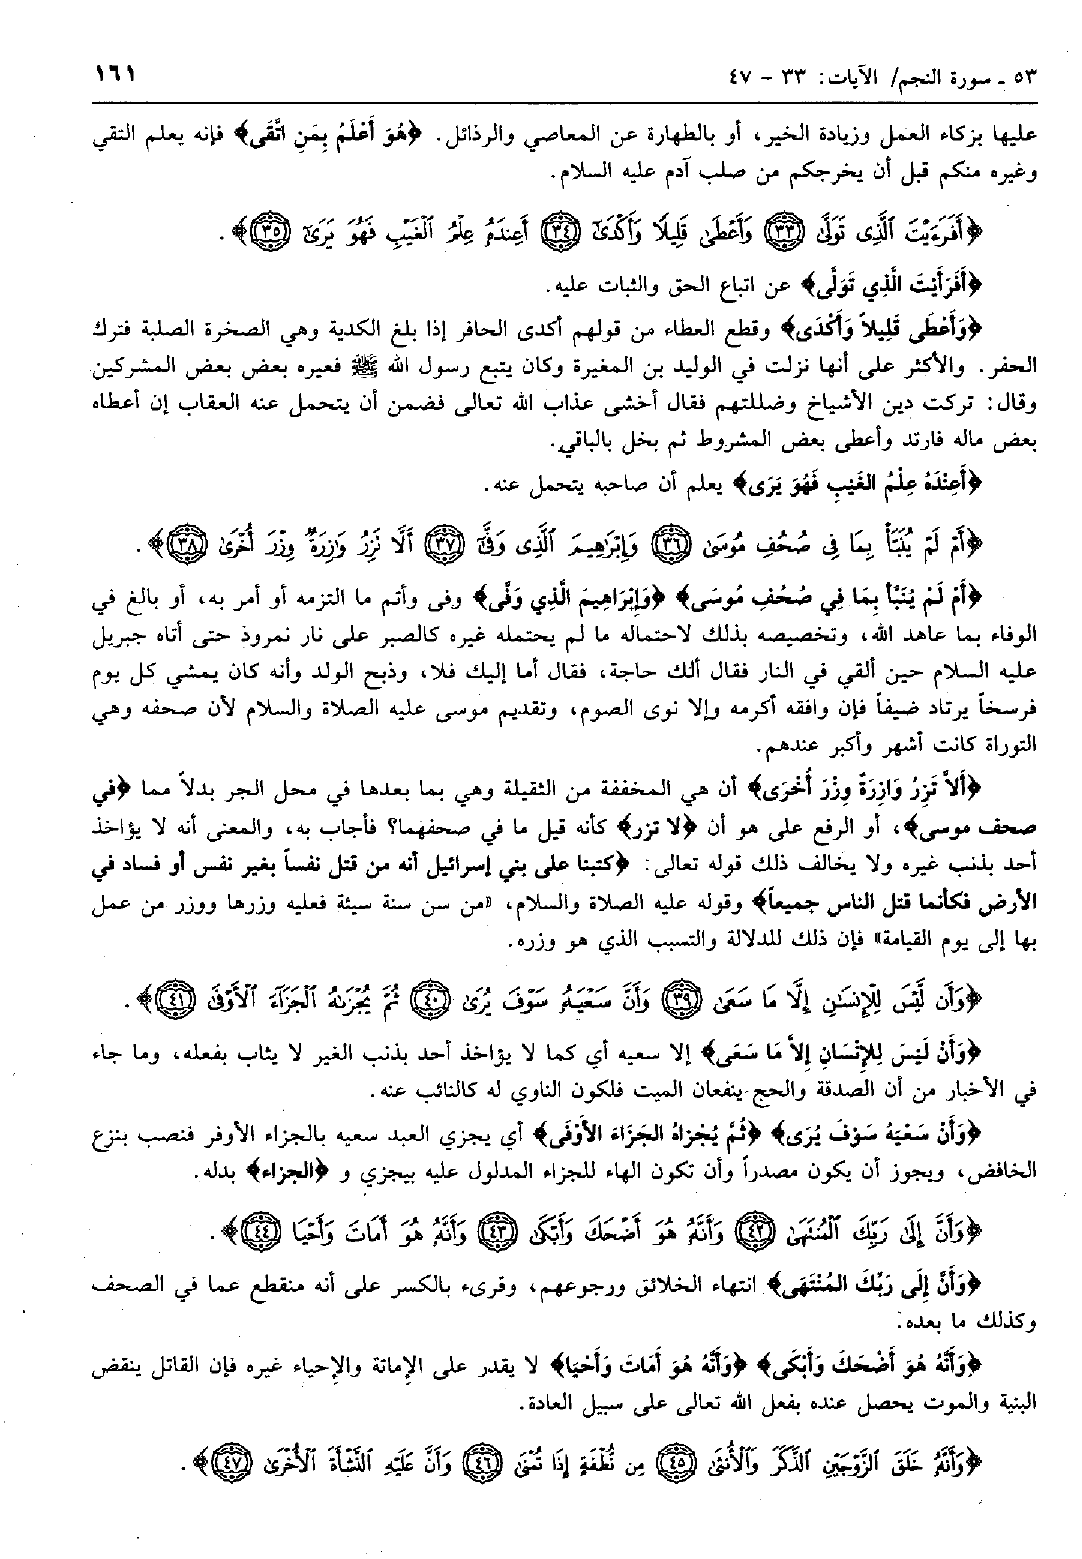 ٥٣ ـ سورة النجم/ الآيات: ٣٣ - ٤٧
١٦١
عليها بزكاء العمل وزيادة الخير، أو بالطهارة عن المعاصي والرذائل. ﴿هُوَ أَعْلَمُ بِمَنِ اتَّقَى﴾ فإنه يعلم التقي
وغيره منكم قبل أن يخرجكم من صلب آدم عليه السلام.
﴿أَفَرَءَيْتَ ٱلَّذِى تَوَلَّىٰ ٣٣ وَأَعْطَىٰ قَلِيلًا وَأَكْدَىٰٓ ٣٤ أَعِندَهُۥ عِلْمُ ٱلْغَيْبِ فَهُوَ يَرَىٰٓ ٣٥﴾.
﴿أَفَرَأَيْتَ الَّذِي تَوَلَّى﴾ عن اتباع الحق والثبات عليه.
﴿وَأَعْطَى قَلِيلاً وَأَكْدَى﴾ وقطع العطاء من قولهم أكدى الحافر إذا بلغ الكدية وهي الصخرة الصلبة فترك
الحفر. والأكثر على أنها نزلت في الوليد بن المغيرة وكان يتبع رسول الله ﷺ فعيره بعض بعض المشركين
وقال: تركت دين الأشياخ وضللتهم فقال أخشى عذاب الله تعالى فضمن أن يتحمل عنه العقاب إن أعطاه
بعض ماله فارتد وأعطى بعض المشروط ثم بخل بالباقي.
﴿أَعِنْدَهُ عِلْمُ الغَيْبِ فَهُوَ يَرَى﴾ يعلم أن صاحبه يتحمل عنه.
﴿أَمْ لَمْ يُنَبَّأْ بِمَا فِى صُحُفِ مُوسَىٰ ٣٦ وَإِبْرَٰهِيمَ ٱلَّذِى وَفَّىٰٓ ٣٧ أَلَّا تَزِرُ وَازِرَةٌ وِزْرَ أُخْرَىٰ ٣٨﴾.
﴿أَمْ لَمْ يُنَبَّأْ بِمَا فِي صُحُفِ مُوسَى﴾ ﴿وَإِبْرَاهِيمَ الَّذِي وَفَّى﴾ وفى وأتم ما التزمه أو أمر به، أو بالغ في
الوفاء بما عاهد الله، وتخصيصه بذلك لاحتماله ما لم يحتمله غيره كالصبر على نار نمروذ حتى أتاه جبريل
عليه السلام حين ألقي في النار فقال ألك حاجة، فقال أما إليك فلا، وذبح الولد وأنه كان يمشي كل يوم
فرسخاً يرتاد ضيفاً فإن وافقه أكرمه وإلا نوى الصوم، وتقديم موسى عليه الصلاة والسلام لأن صحفه وهي
التوراة كانت أشهر وأكبر عندهم.
﴿أَلاَّ تَزِرُ وَازِرَةٌ وِزْرَ أُخْرَى﴾ أن هي المخففة من الثقيلة وهي بما بعدها في محل الجر بدلاً مما ﴿في
صحف موسى﴾، أو الرفع على هو أن ﴿لا تزر﴾ كأنه قيل ما في صحفهما؟ فأجاب به، والمعنى أنه لا يؤاخذ
أحد بذنب غيره ولا يخالف ذلك قوله تعالى: ﴿كتبنا على بني إسرائيل أنه من قتل نفساً بغير نفس أو فساد في
الأرض فكأنما قتل الناس جميعاً﴾ وقوله عليه الصلاة والسلام، «من سن سنة سيئة فعليه وزرها ووزر من عمل
بها إلى يوم القيامة» فإن ذلك للدلالة والتسبب الذي هو وزره.
﴿وَأَن لَّيْسَ لِلْإِنسَٰنِ إِلَّا مَا سَعَىٰ ٣٩ وَأَنَّ سَعْيَهُۥ سَوْفَ يُرَىٰ ٤٠ ثُمَّ يُجْزَىٰهُ ٱلْجَزَآءَ ٱلْأَوْفَىٰ ٤١﴾.
﴿وَأَنْ لَيْسَ لِلإِنْسَانِ إِلاَّ مَا سَعَى﴾ إلا سعيه أي كما لا يؤاخذ أحد بذنب الغير لا يثاب بفعله، وما جاء
في الأخبار من أن الصدقة والحج ينفعان الميت فلكون الناوي له كالنائب عنه.
﴿وَأَنَّ سَعْيَهُ سَوْفَ يُرَى﴾ ﴿ثُمَّ يُجْزَاهُ الجَزَاءَ الأَوْفَى﴾ أي يجزي العبد سعيه بالجزاء الأوفر فنصب بنزع
الخافض، ويجوز أن يكون مصدراً وأن تكون الهاء للجزاء المدلول عليه بيجزي و ﴿الجزاء﴾ بدله.
﴿وَأَنَّ إِلَىٰ رَبِّكَ ٱلْمُنتَهَىٰ ٤٢ وَأَنَّهُۥ هُوَ أَضْحَكَ وَأَبْكَىٰ ٤٣ وَأَنَّهُۥ هُوَ أَمَاتَ وَأَحْيَا ٤٤﴾.
﴿وَأَنَّ إِلَى رَبِّكَ المُنْتَهَى﴾ انتهاء الخلائق ورجوعهم، وقرىء بالكسر على أنه منقطع عما في الصحف
وكذلك ما بعده:
﴿وَأَنَّهُ هُوَ أَضْحَكَ وَأَبْكَى﴾ ﴿وَأَنَّهُ هُوَ أَمَاتَ وَأَحْيَا﴾ لا يقدر على الإماتة والإحياء غيره فإن القاتل ينقض
البنية والموت يحصل عنده بفعل الله تعالى على سبيل العادة.
﴿وَأَنَّهُۥ خَلَقَ ٱلزَّوْجَيْنِ ٱلذَّكَرَ وَٱلْأُنثَىٰ ٤٥ مِن نُّطْفَةٍ إِذَا تُمْنَىٰ ٤٦ وَأَنَّ عَلَيْهِ ٱلنَّشْأَةَ ٱلْأُخْرَىٰ ٤٧﴾.